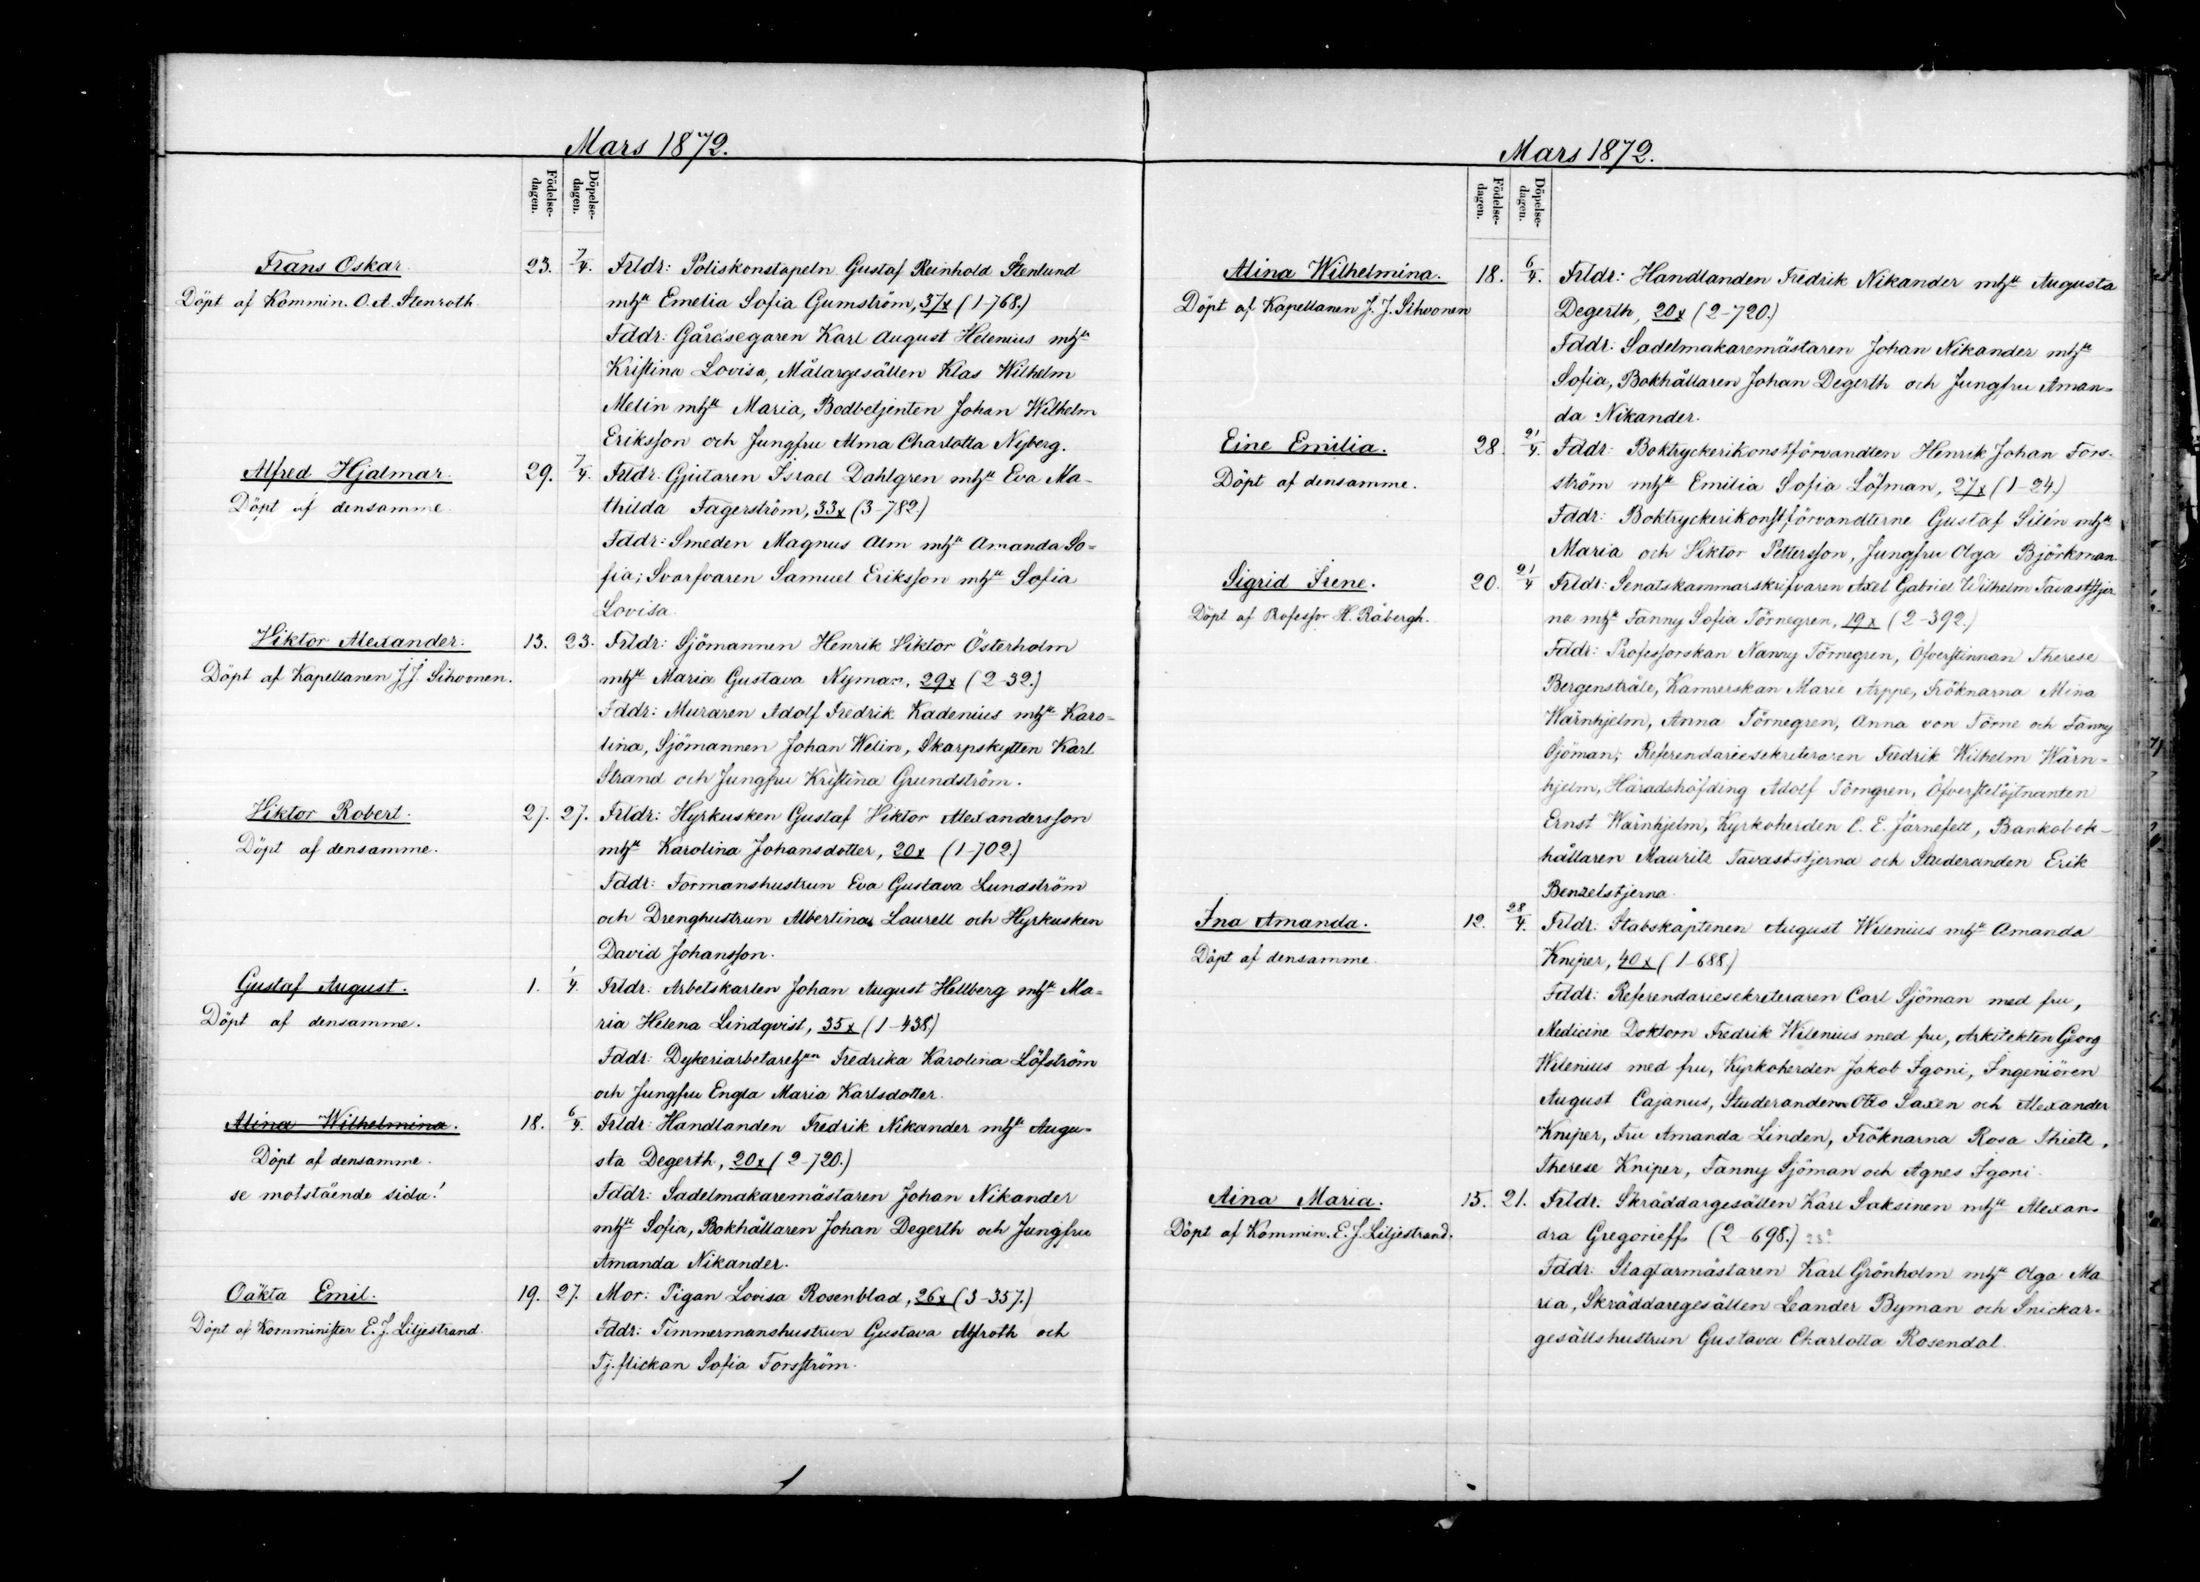 Mars 1872.
Födelse-dagen.
Döpelse-dagen.
Frans Oskar. 23. 7/4. Frldr: Poliskonstapeln Gustaf Reinhold Stenlund
Döpt af Kommin. O. A. Stenroth. mhu Emelia Sofia Gumström, 37x (1-768.)
Fddr: Gårdsegaren Karl August Helenius mhu
Kristina Lovisa, Målargesällen Klas Wilhelm
Melin mhu Maria, Bodbetjenten Johan Wilhelm
Eriksson och Jungfru Alma Charlotta Nyberg.
Alfred Hjalmar. 29. 7/4. Frldr. Gjutaren Israel Dahlgren mhu Eva Ma-
Döpt af densamme. thilda Fagerström, 33x (3-782.)
Fddr: Smeden Magnus Alm mhu Amanda So-
fia; Svarfvaren Samuel Eriksson mhu Sofia
Lovisa.
Viktor Alexander. 13. 23. Frldr: Sjömannen Henrik Viktor Österholm
Döpt af Kapellanen J. J. Sihvonen. mhu Maria Gustava Nyman, 29x (2-32.)
Fddr: Muraren Adolf Fredrik Kadenius mhu Karo-
lina, Sjömannen Johan Welin, Skarpskytten Karl
Strand och Jungfru Kristina Grundström.
Viktor Robert. 27. 27. Frldr: Hyrkusken Gustaf Viktor Alexandersson
Döpt af densamme. mhu Karolina Johansdotter, 20x (1-702.)
Fddr: Formanshustrun Eva Gustava Lundström
och Drenghustrun Albertina Laurell och Hyrkusken
David Johansson.
Gustaf August. 1. 1/4. Frldr: Arbetskarlen Johan August Hellberg mhu Ma-
Döpt af densamme. ria Helena Lindqvist, 35x (1-438.)
Fddr: Dykeriarbetareh:un Fredrika Karolina Löfström
och Jungfru Engla Maria Karlsdotter.
Alina Wilhelmina. 18. 6/4. Frldr: Handlanden Fredrik Nikander mhu Augu-
Döpt af densamme. sta Degerth, 20x (2-720.)
se motstående sida! Fddr: Sadelmakaremästaren Johan Nikander
mhu Sofia, Bokhållaren Johan Degerth och Jungfru
Amanda Nikander.
Oäkta Emil. 19. 27. Mor: Pigan Lovisa Rosenblad, 26x (3-357.)
Döpt af Komminister E. J. Liljestrand. Fddr: Timmermanshustrun Gustava Alfroth och
Tj. flickan Sofia Forsström.
Mars 1872.
Födelse-dagen.
Döpelse-dagen.
Alina Wilhelmina. 18. 6/4. Frldr: Handlanden Fredrik Nikander mhu Augusta
Döpt af Kapellanen J. J. Sihvonen Degerth, 20x (2-720.)
Fddr: Sadelmakaremästaren Johan Nikander mhu
Sofia, Bokhållaren Johan Degerth och Jungfru Aman-
da Nikander.
Eine Emilia. 28. 21/4. Fddr: Boktryckerikonstförvandten Henrik Johan Fors-
Döpt af densamme. ström mhu Emilia Sofia Löfman, 27x (1-24.)
Fddr: Boktryckerikonstförvandterne Gustaf Silén mhu
Maria och Viktor Pettersson, Jungfru Olga Björkman.
Sigrid Irene. 20. 21/4 Frldr: Senatskammarskrifvaren Axel Gabriel Wilhelm Tavaststjer
Döpt af Professor H. Råbergh. na mhu Fanny Sofia Törnegren, 19x (2-392.)
Fddr: Professorskan Nanny Törnegren, Öfverstinnan Therese
Bergenstråle, Kamrerskan Marie Arppe, Fröknarna Mina
Wärnhjelm, Anna Törnegren, Anna von Törne och Fanny
Sjöman; Referendariesekreteraren Fredrik Wilhelm Wärn-
hjelm, Häradshöfding Adolf Törngren, Öfverstelöjtnanten
Ernst Wärnhjelm, Kyrkoherden C. E. Järnefelt, Bankobok-
hållaren Mauritz Tavaststjerna och Studeranden Erik
Benzelstjerna.
Ina Amanda. 12. 28/4. Frldr: Stabskaptenen August Wilenius mhu Amanda
Döpt af densamme. Kniper, 40x (1-688.)
Fddr: Referendariesekreteraren Carl Sjöman med fru,
Medicine Doktorn Fredrik Wilenius med fru, Arkitekten Georg
Wilenius med fru, Kyrkoherden Jakob Igoni, Ingeniören
August Cajanus, Studerandena Otto Saxen och Alexander
Kniper, Fru Amanda Linden, Fröknarna Rosa Thiele,
Therese Kniper, Fanny Sjöman och Agnes Igoni.
Aina Maria. 15. 21. Frldr: Skräddargesällen Karl Saksinen mhu Alexan-
Döpt af Kommin. E. J. Liljestrand. dra Gregorieff (2-698.)
Fddr: Slagtarmästaren Karl Grönholm mhu Olga Ma
ria, Skräddaregesällen Leander Byman och Snickar-
gesällshustrun Gustava Charlotta Rosendal.